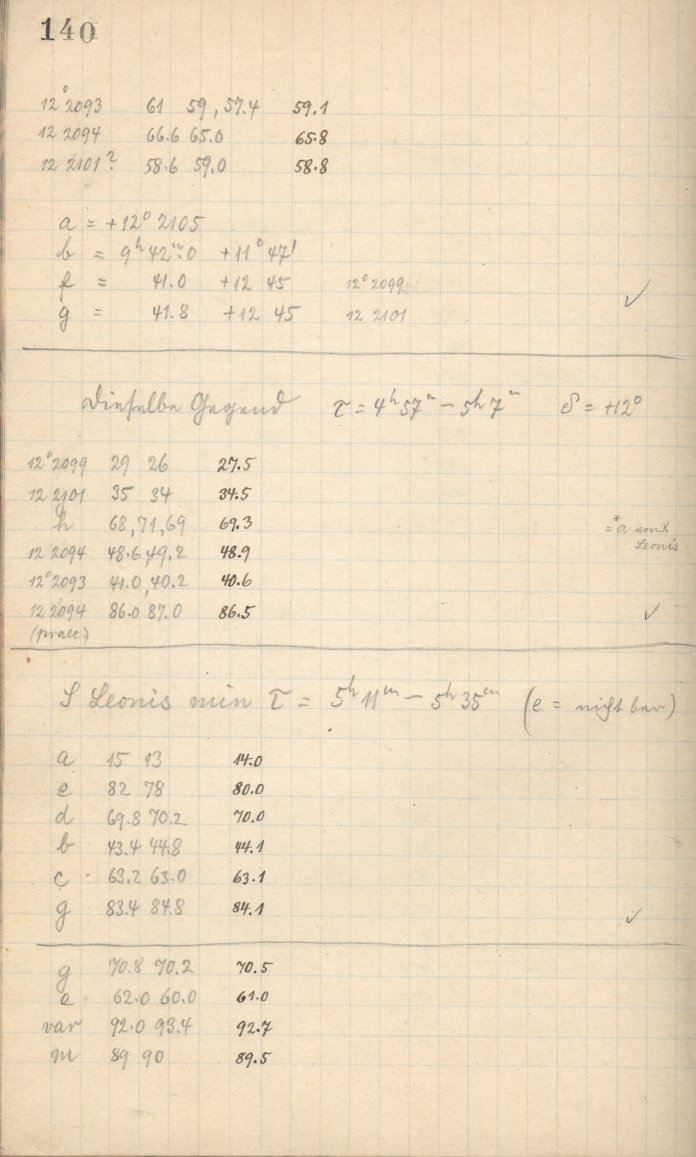 140
12° 2093 61 59, 57.4 59.1
12 2094 66.6 65.0 65.8
12 2101? 58.6 59.0 58.8
a = +12° 2105
b = 9h 42m.0 +11° 47'
f = 41.0 +12 45 12° 2099
g = 41.8 +12 45 12 2101
✓
Dieselbe Gegend τ = 4h 57m – 5h 7m δ = +12°
12° 2099 29 26 27.5
12 2101 35 34 34.5
h 68, 71, 69 69.3 = *a von X
Leonis
12 2094 48.6, 49.2 48.9
12° 2093 41.0, 40.2 40.6
12 2094 86.0 87.0 86.5 ✓
(praec.)
S Leonis min τ = 5h 11m – 5h 35m (e = nicht bar)
a 15 13 14.0
e 82 78 80.0
d 69.8 70.2 70.0
b 43.4 44.8 44.1
c 63.2 63.0 63.1
g 83.4 84.8 84.1 ✓
g 70.8 70.2 70.5
e 62.0 60.0 61.0
var 92.0 93.4 92.7
m 89 90 89.5